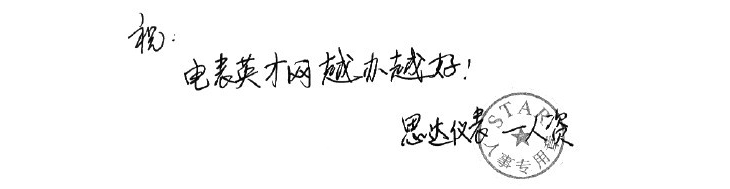 祝:
电表英才网越办越好!
思达仪表—人资
STAR
人事专用章